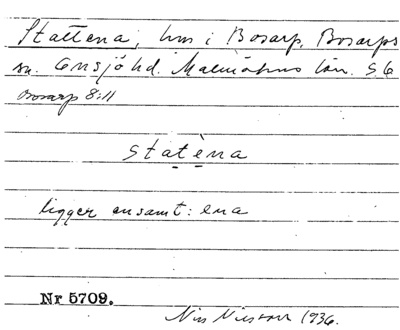 Stattena, hm i Bosarp, Bosarps
sn. Onsjö hd. Malmöhus län. S6
Bosarp 8:11
statèna
ligger ensamt: ena
Nr 5709.
Nils 1936.